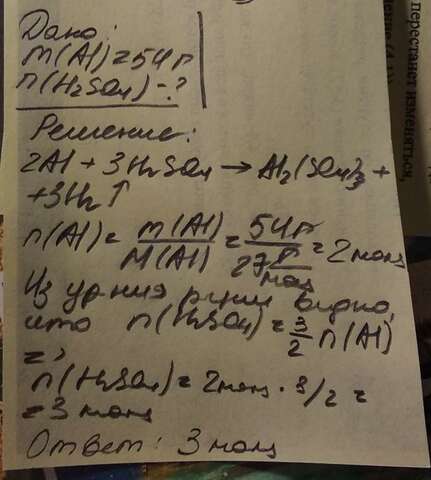 Дано:
m(Al)=54г
n(H₂SO₄)-?
Решение:
2Al + 3H₂SO₄ → Al₂(SO₄)₃ +
+3H₂↑
n(Al)= m(Al)/M(Al) = 54г/27г/моль = 2 моль
Из ур-ния р-ции видно,
что n(H₂SO₄)=3/2 n(Al)
=>
n(H₂SO₄)= 2моль · 3/2 =
= 3 моль
Ответ: 3 моль
перестанет изменяться,